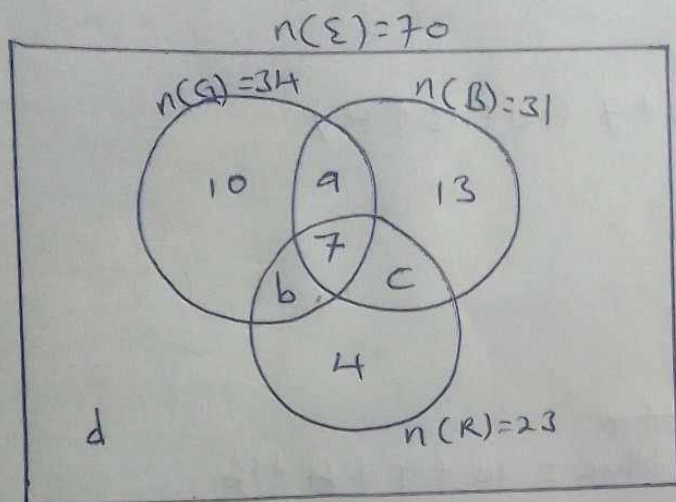 n(ε)=70
n(G)=34
n(B)=31
10
a
13
7
b
c
4
d
n(R)=23